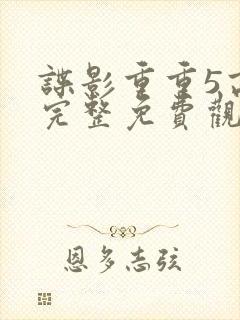 諜影重重5高
完整免費觀
恩多志弦